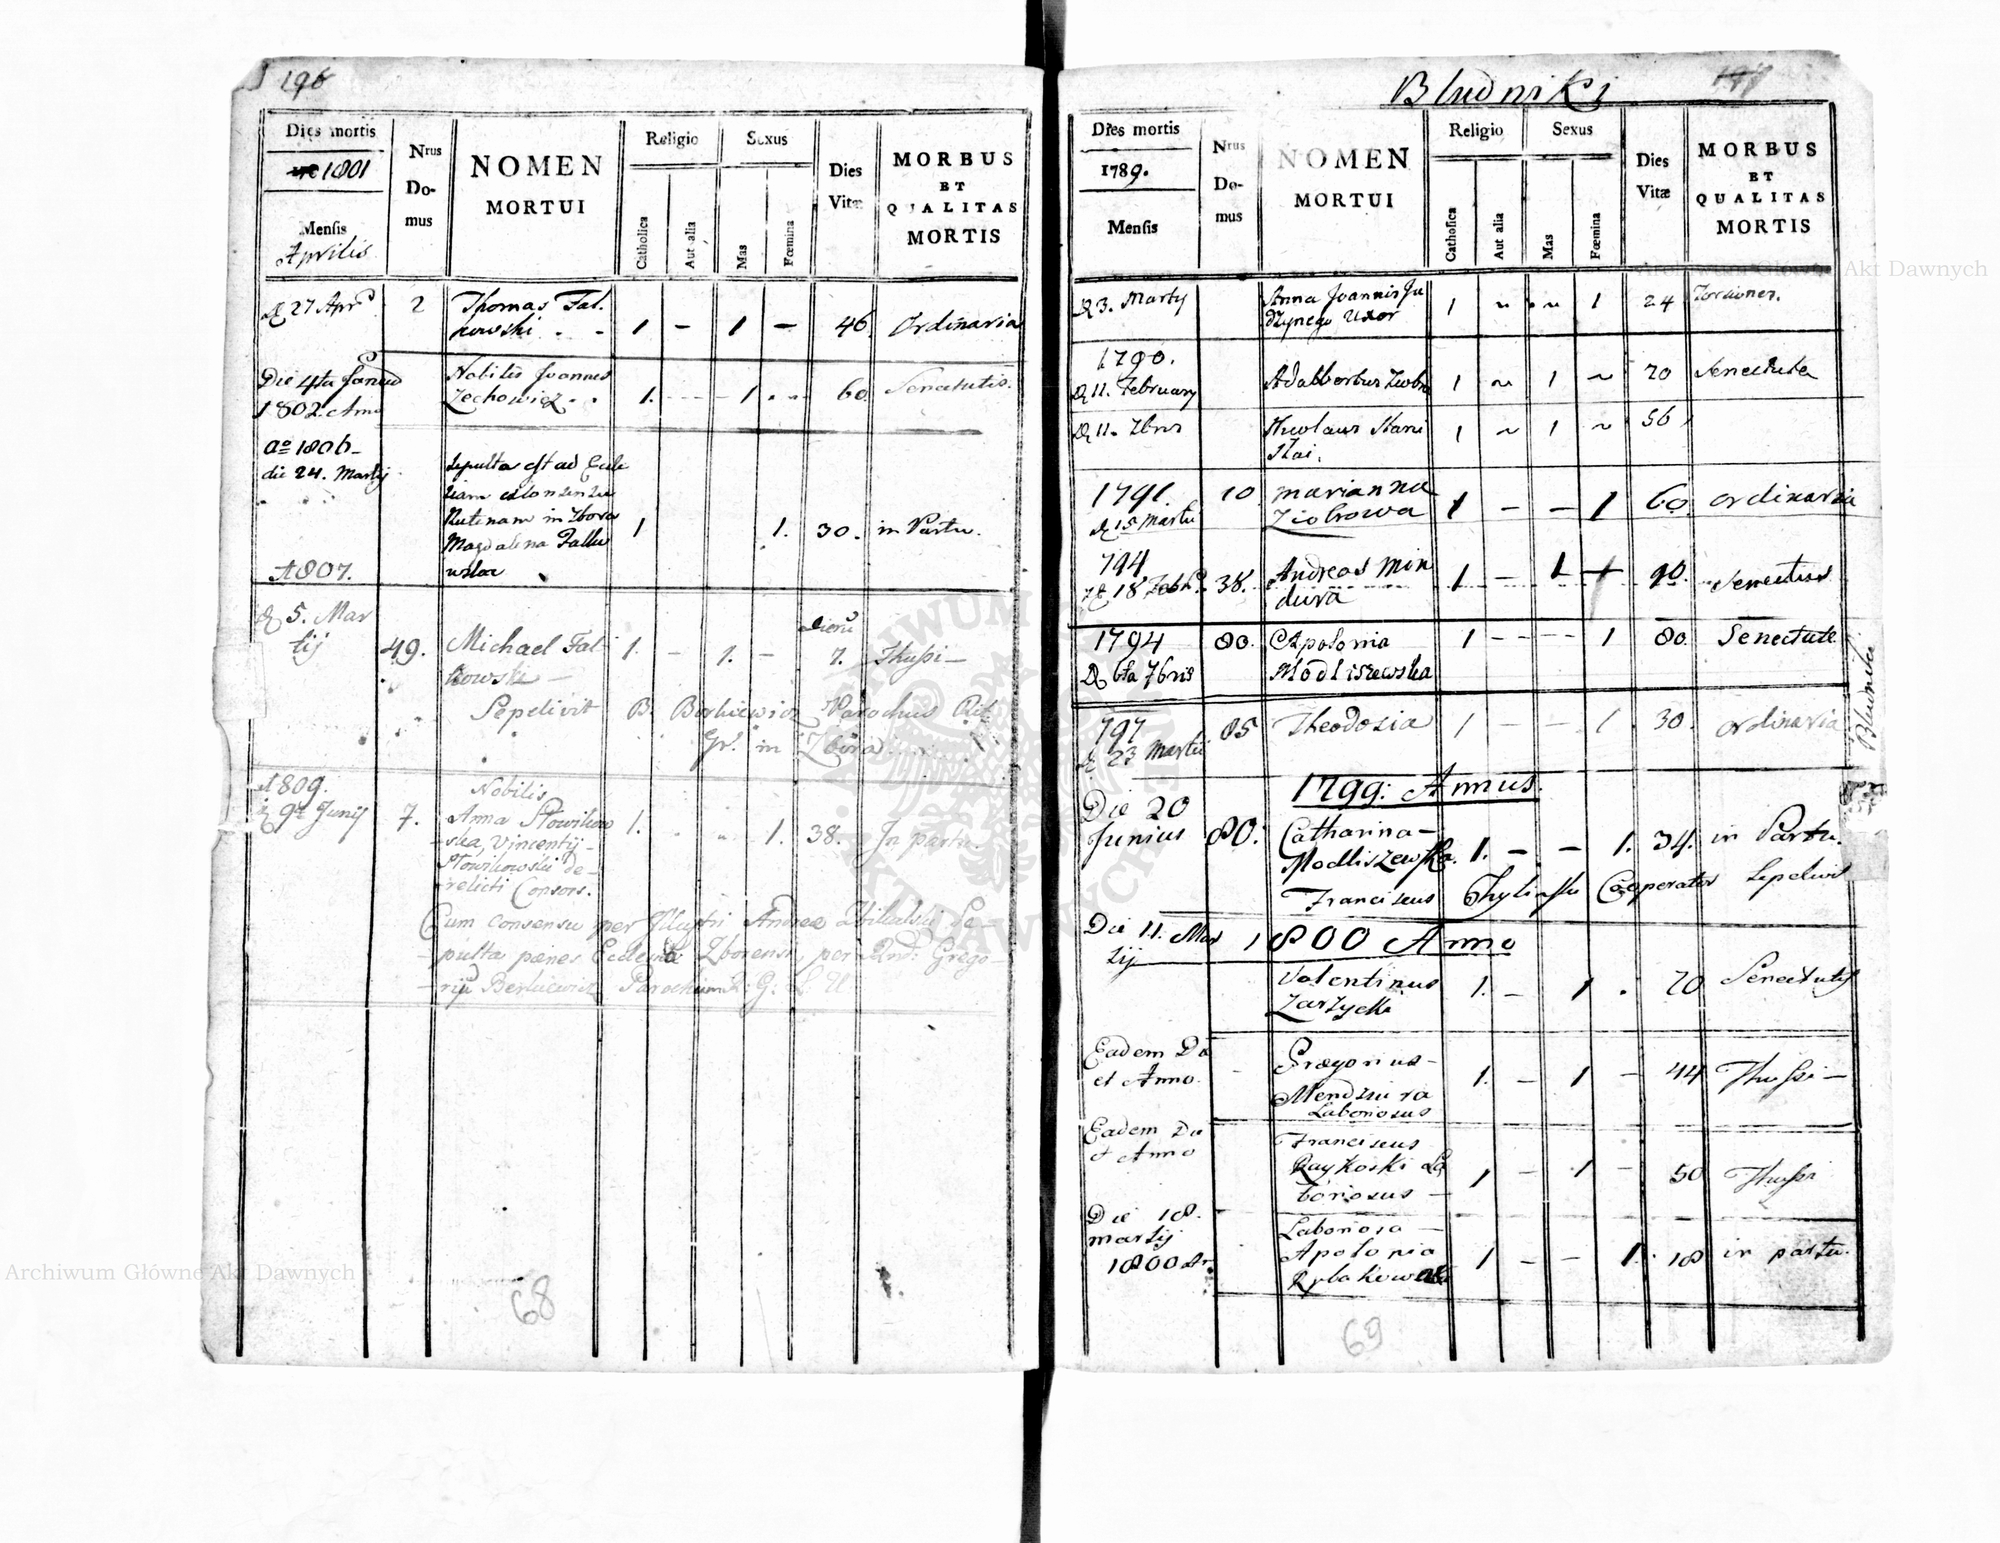 196
Dies mortis
1801
Mensis
Aprilis
Nrus
Do-
mus
NOMEN
MORTUI
Religio
Catholica
Aut alia
Sexus
Mas
Fœmina
Dies
Vitæ
MORBUS
ET
QUALITAS
MORTIS
27 Apr 2 Thomas Fal-
kowski 1 - 1 - 46 Ordinaria
Die 4ta Nobilis Joannes
1802 Zechowicz 1. 1 60 Senectutis.
aō 1806
die 24. Martij Sepulta est ad Eccle
siam
Rutenam in Zbora 1 1. 30. in Partu.
Magdalena Falko
wska
1807.
5. Mar dierū
tij 49. Michael Fal 1. - 1. - 7. Thussi-
kowski -
Sepelivit B. Berkiewicz Parochus Rit.
Gr. in Zbora
1809. Nobilis
9a Junij 7. Anna Słowikow 1. 1. 38. In partu.
-ska, Vincentij-
Słowikowski de-
-relicti Consors.
Cum consensu per Illustri Andrea Se-
-pulta penes Ecclesia Zborensi, per Rnd: Grego-
-rijū Berkiewicz Parochum R: G:
68
Bludniki
Dies mortis
1789.
Mensis
Nrus
Do-
mus
NOMEN
MORTUI
Religio
Catholica
Aut alia
Sexus
Mas
Fœmina
Dies
Vitæ
MORBUS
ET
QUALITAS
MORTIS
3. Martij Anna Joannis Ju
dzynego Uxor 1 ~ ~ 1 24
1790.
11. February Adalbertus 1 ~ 1 ~ 70 Senectute
11. 7bris Nicolaus 1 ~ 1 ~ 56
1791 10 Marianna 1 - - 1 60 Ordinaria
15 Martii Ziobrowa
794
18 38. Andreas Min 1 - 1 90. Senectus
dura
1794 80. Apolonia 1 - - - - 1 80. Senectute
6ta 7bris Modliszewska
797 85 Theodosia 1 - - 1 30. Ordinaria
23 Martii
Bludniki
1799: Annus.
Die 20
Junius 80. Catharina- 1. - - 1. 34. in Partu.
Modliszewska.
Franciscus Cooperator Sepelivit
Die 11. Mar 1800 Anno
tij
Valentinus 1. - 1 . 70 Senectutis
Zarzycki
Eadem Die Gregorius- 1. - 1 - 44 Thussi-
et Anno. Mendziura
Laboriosus
Eadem Die Franciscus
et Anno Raykoski La 1 - 1 - 50 Thussi
boriosus -
Die 18. Laboriosa -
Martij Apolonia 1 - - 1. 18 in partu.
1800 Rybakowska
69
Archiwum Główne Akt Dawnych
Archiwum Główne Akt Dawnych
ARCHIWUM GŁÓWNE AKT DAWNYCH